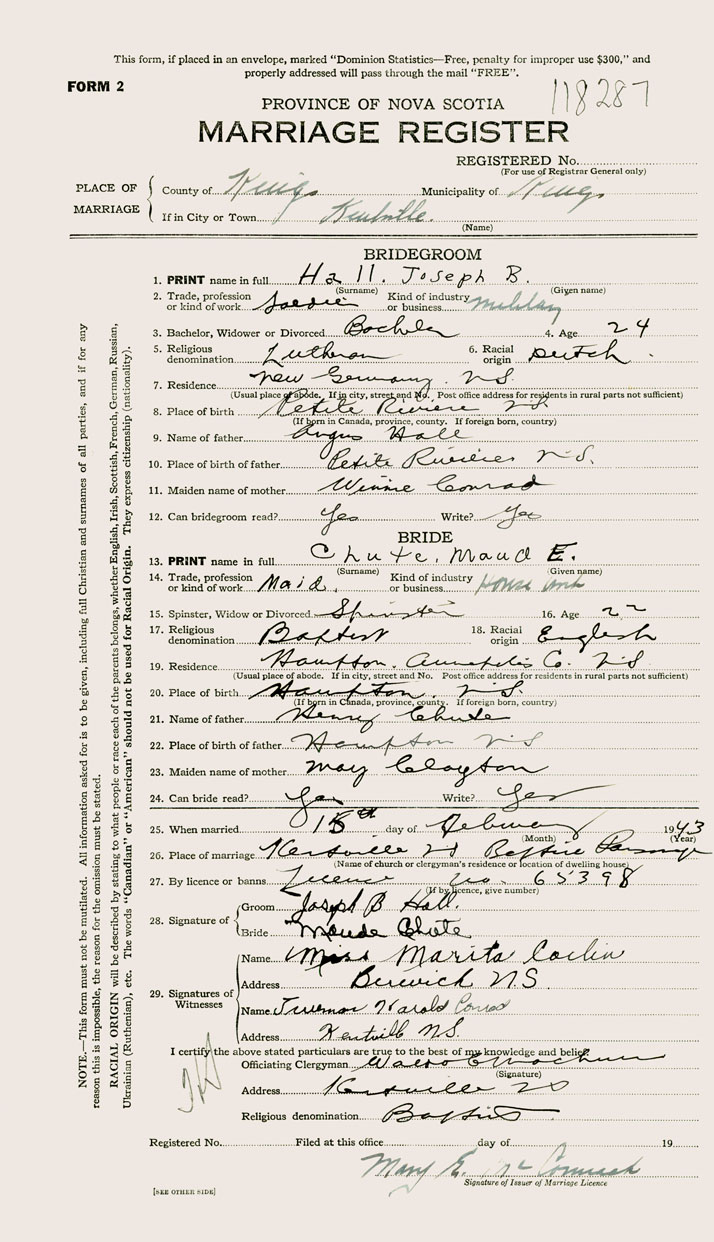 This form, if placed in an envelope, marked "Dominion Statistics—Free, penalty for improper use $300," and
properly addressed will pass through the mail "FREE".
FORM 2
118287
PROVINCE OF NOVA SCOTIA
MARRIAGE REGISTER
REGISTERED No.
(For use of Registrar General only)
PLACE OF MARRIAGE
County of Kings Municipality of Kings
If in City or Town Kentville.
(Name)
BRIDEGROOM
1. PRINT name in full Hall. Joseph B.
(Surname) (Given name)
2. Trade, profession or kind of work Soldier Kind of industry or business military
3. Bachelor, Widower or Divorced Bachelor 4. Age 24
5. Religious denomination Lutheran 6. Racial origin Dutch.
7. Residence New Germany. N.S.
(Usual place of abode. If in city, street and No. Post office address for residents in rural parts not sufficient)
8. Place of birth Petite Riviere N.S.
(If born in Canada, province, county. If foreign born, country)
9. Name of father Angus Hall
10. Place of birth of father Petite Riviere N.S.
11. Maiden name of mother Winnie Conrad
12. Can bridegroom read? Yes Write? Yes
BRIDE
13. PRINT name in full Chute, Maud E.
(Surname) (Given name)
14. Trade, profession or kind of work Maid. Kind of industry or business House work
15. Spinster, Widow or Divorced Spinster 16. Age 22
17. Religious denomination Baptist 18. Racial origin English
19. Residence Hampton. Annapolis Co. N.S.
(Usual place of abode. If in city, street and No. Post office address for residents in rural parts not sufficient)
20. Place of birth Hampton, N.S.
(If born in Canada, province, county. If foreign born, country)
21. Name of father Henry Chute
22. Place of birth of father Hampton N.S
23. Maiden name of mother May Clayton
24. Can bride read? Yes Write? Yes
25. When married 15th day of February 1943
(Month) (Year)
26. Place of marriage Kentville N.S Baptist Parsonage
(Name of church or clergyman's residence or location of dwelling house)
27. By licence or banns Licence No. 65398
(If by licence, give number)
28. Signature of
Groom Joseph B Hall.
Bride Maude Chute
29. Signatures of Witnesses
Name Miss Marita
Address Berwick N.S.
Name Harold
Address Kentville N.S.
I certify the above stated particulars are true to the best of my knowledge and belief.
Officiating Clergyman
(Signature)
Address Kentville N.S
Religious denomination Baptist
Registered No. Filed at this office day of 19
Mary E. McCormick
Signature of Issuer of Marriage Licence
[SEE OTHER SIDE]
NOTE.—This form must not be mutilated. All information asked for is to be given, including full Christian and surnames of all parties, and if for any
reason this is impossible, the reason for the omission must be stated.
RACIAL ORIGIN will be described by stating to what people or race each of the parents belongs, whether English, Irish, Scottish, French, German, Russian,
Ukrainian (Ruthenian), etc. The words "Canadian" or "American" should not be used for Racial Origin. They express citizenship (nationality).